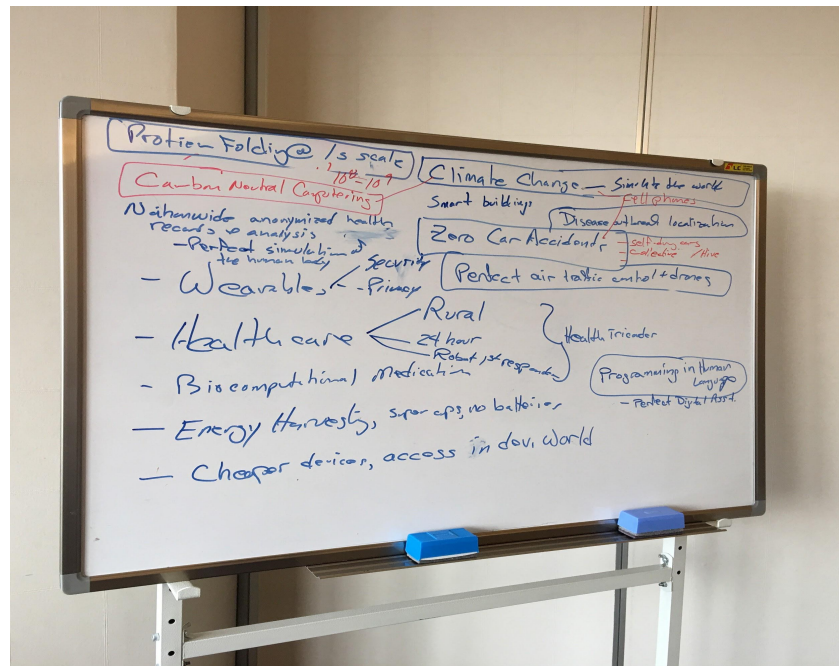 Protien Folding@ 1s scale
10⁸ = 10⁹
Carbon Neutral Computering
Nationwide anonymized health
records & analysis
- Perfect simulation of
the human body
- Wearables - Security
- Privacy
- Healthcare
Rural
24 hour
Robot 1st responder
Health Tricoder
- Biocomputational Medication
- Energy Harvesting, super caps, no batteries
- Cheaper devices, access in dev. World
Climate Change - Simulate the world
Cell phones
Smart buildings
Disease outbreak localization
Zero Car Accidents
- self-driving cars
- collective /Hive
Perfect air traffic control + drones
Programming in Human
Language
- Perfect Digital Asst.